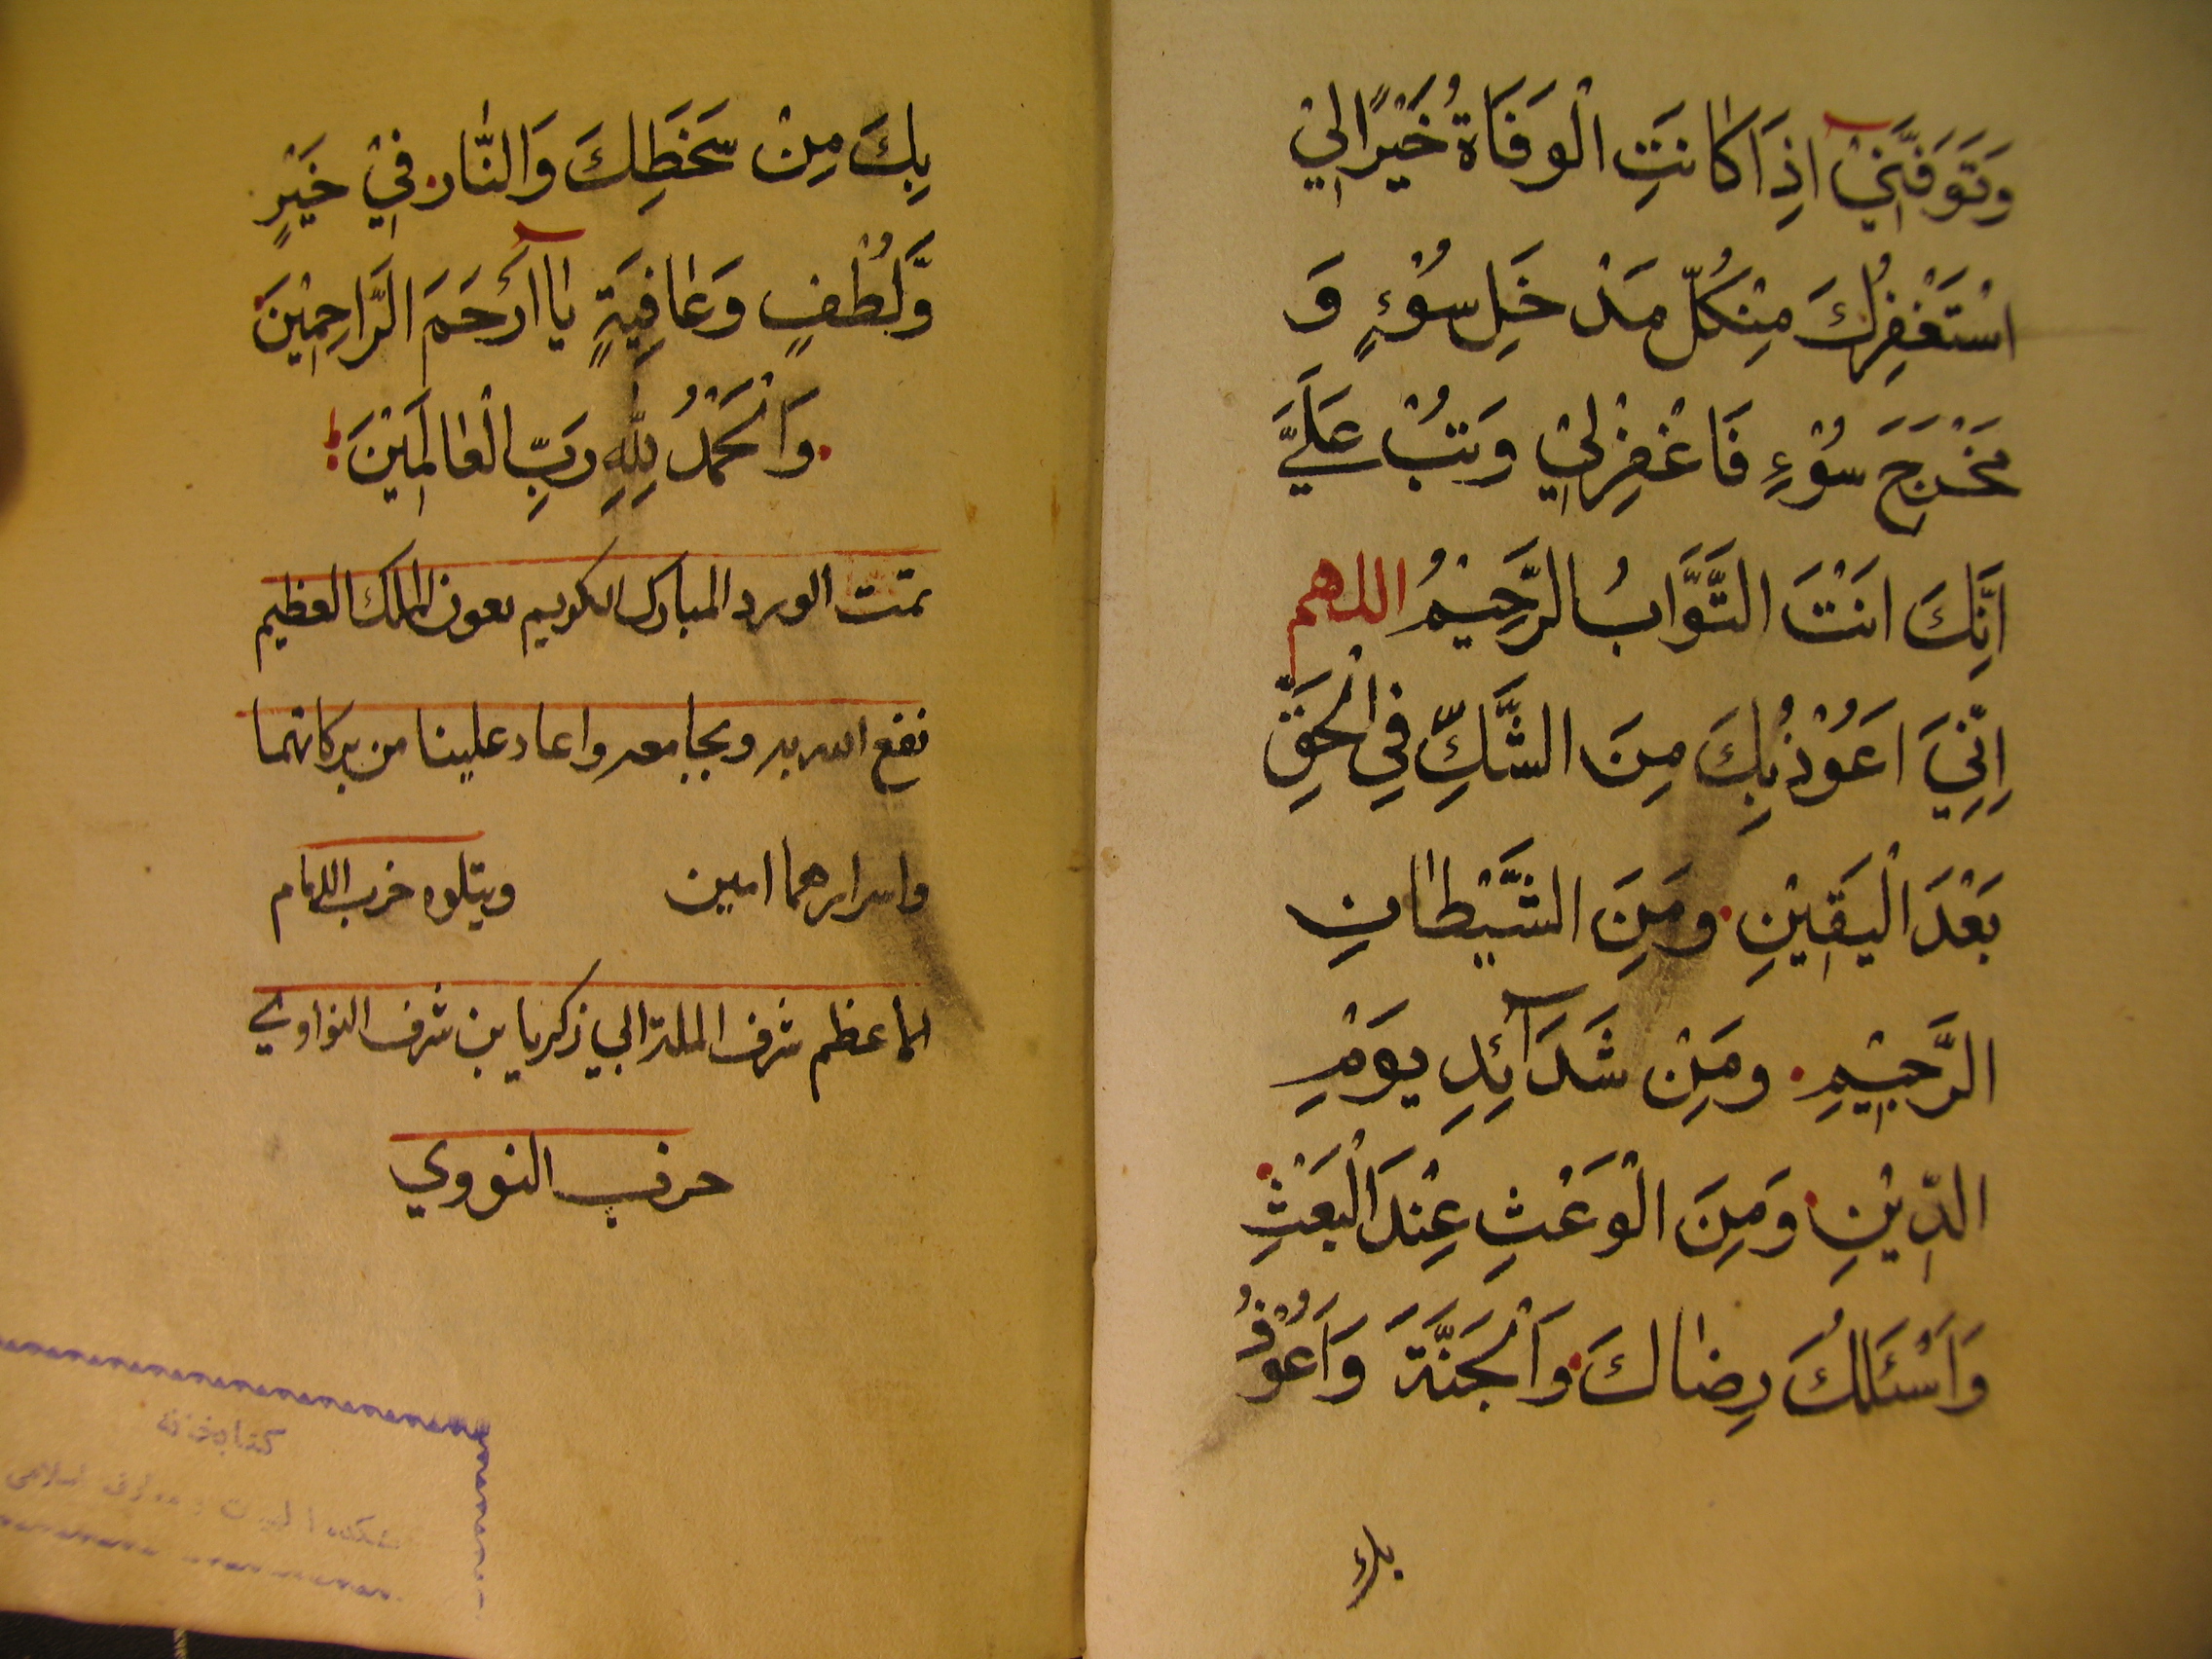 وَتَوَفَّنِيْ اِذَا كَانَتِ الْوَفَاةُ خَيْرًا لِيْ
اَسْتَغْفِرُكَ مِنْ كُلِّ مَدْخَلِ سُوْءٍ وَ
مَخْرَجَ سُوْءٍ فَاغْفِرْ لِيْ وَتُبْ عَلَيَّ
اِنَّكَ اَنْتَ التَّوَّابُ الرَّحِيْمُ اللهم
اِنِّيَ اَعُوْذُ بِكَ مِنَ الشَّكِّ فِي الْحَقِّ
بَعْدَ الْيَقِيْنِ وَمِنَ الشَّيْطَانِ
الرَّجِيْمِ وَمِنْ شَدَآئِدِ يَوْمِ
الدِّيْنِ وَمِنَ الْوَعْثِ عِنْدَ الْبَعْثِ
وَاَسْئَلُكَ رِضَاكَ وَالْجَنَّةَ وَاَعُوْذُ
بك
بِكَ مِنْ سَخَطِكَ وَالنَّارِ فِيْ خَيْرٍ
وَّلُطْفٍ وَعَافِيَةٍ يَا اَرْحَمَ الرَّاحِمِيْنَ
وَالْحَمْدُ لِلّٰهِ رَبِّ الْعَالَمِيْنَ
تمت الورد المبارك الكريم بعون الملك العظيم
نفع الله به وبجامعه واعاد علينا من بركاتهما
واسرارهما امين ويتلوه حزب الامام
الاعظم شرف الملة ابي زكريا بن شرف النواوي
حزب النووي
كتابخانه
دانشكده الهيات و معارف اسلامى